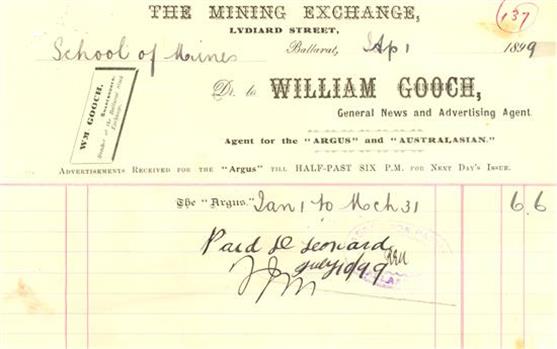 THE MINING EXCHANGE,
137
LYDIARD STREET,
School of Mines
Ballarat, Ap 1 1899
WM GOOCH,
Member of the Ballarat Stock Exchange.
Dr. to WILLIAM GOOCH,
General News and Advertising Agent
Agent for the "ARGUS" and "AUSTRALASIAN."
ADVERTISEMENTS RECEIVED FOR THE "Argus" TILL HALF-PAST SIX P.M. FOR NEXT DAY'S ISSUE.
The "Argus" Jan 1 to Mch 31 6 . 6
Paid D Leonard
July 10/99